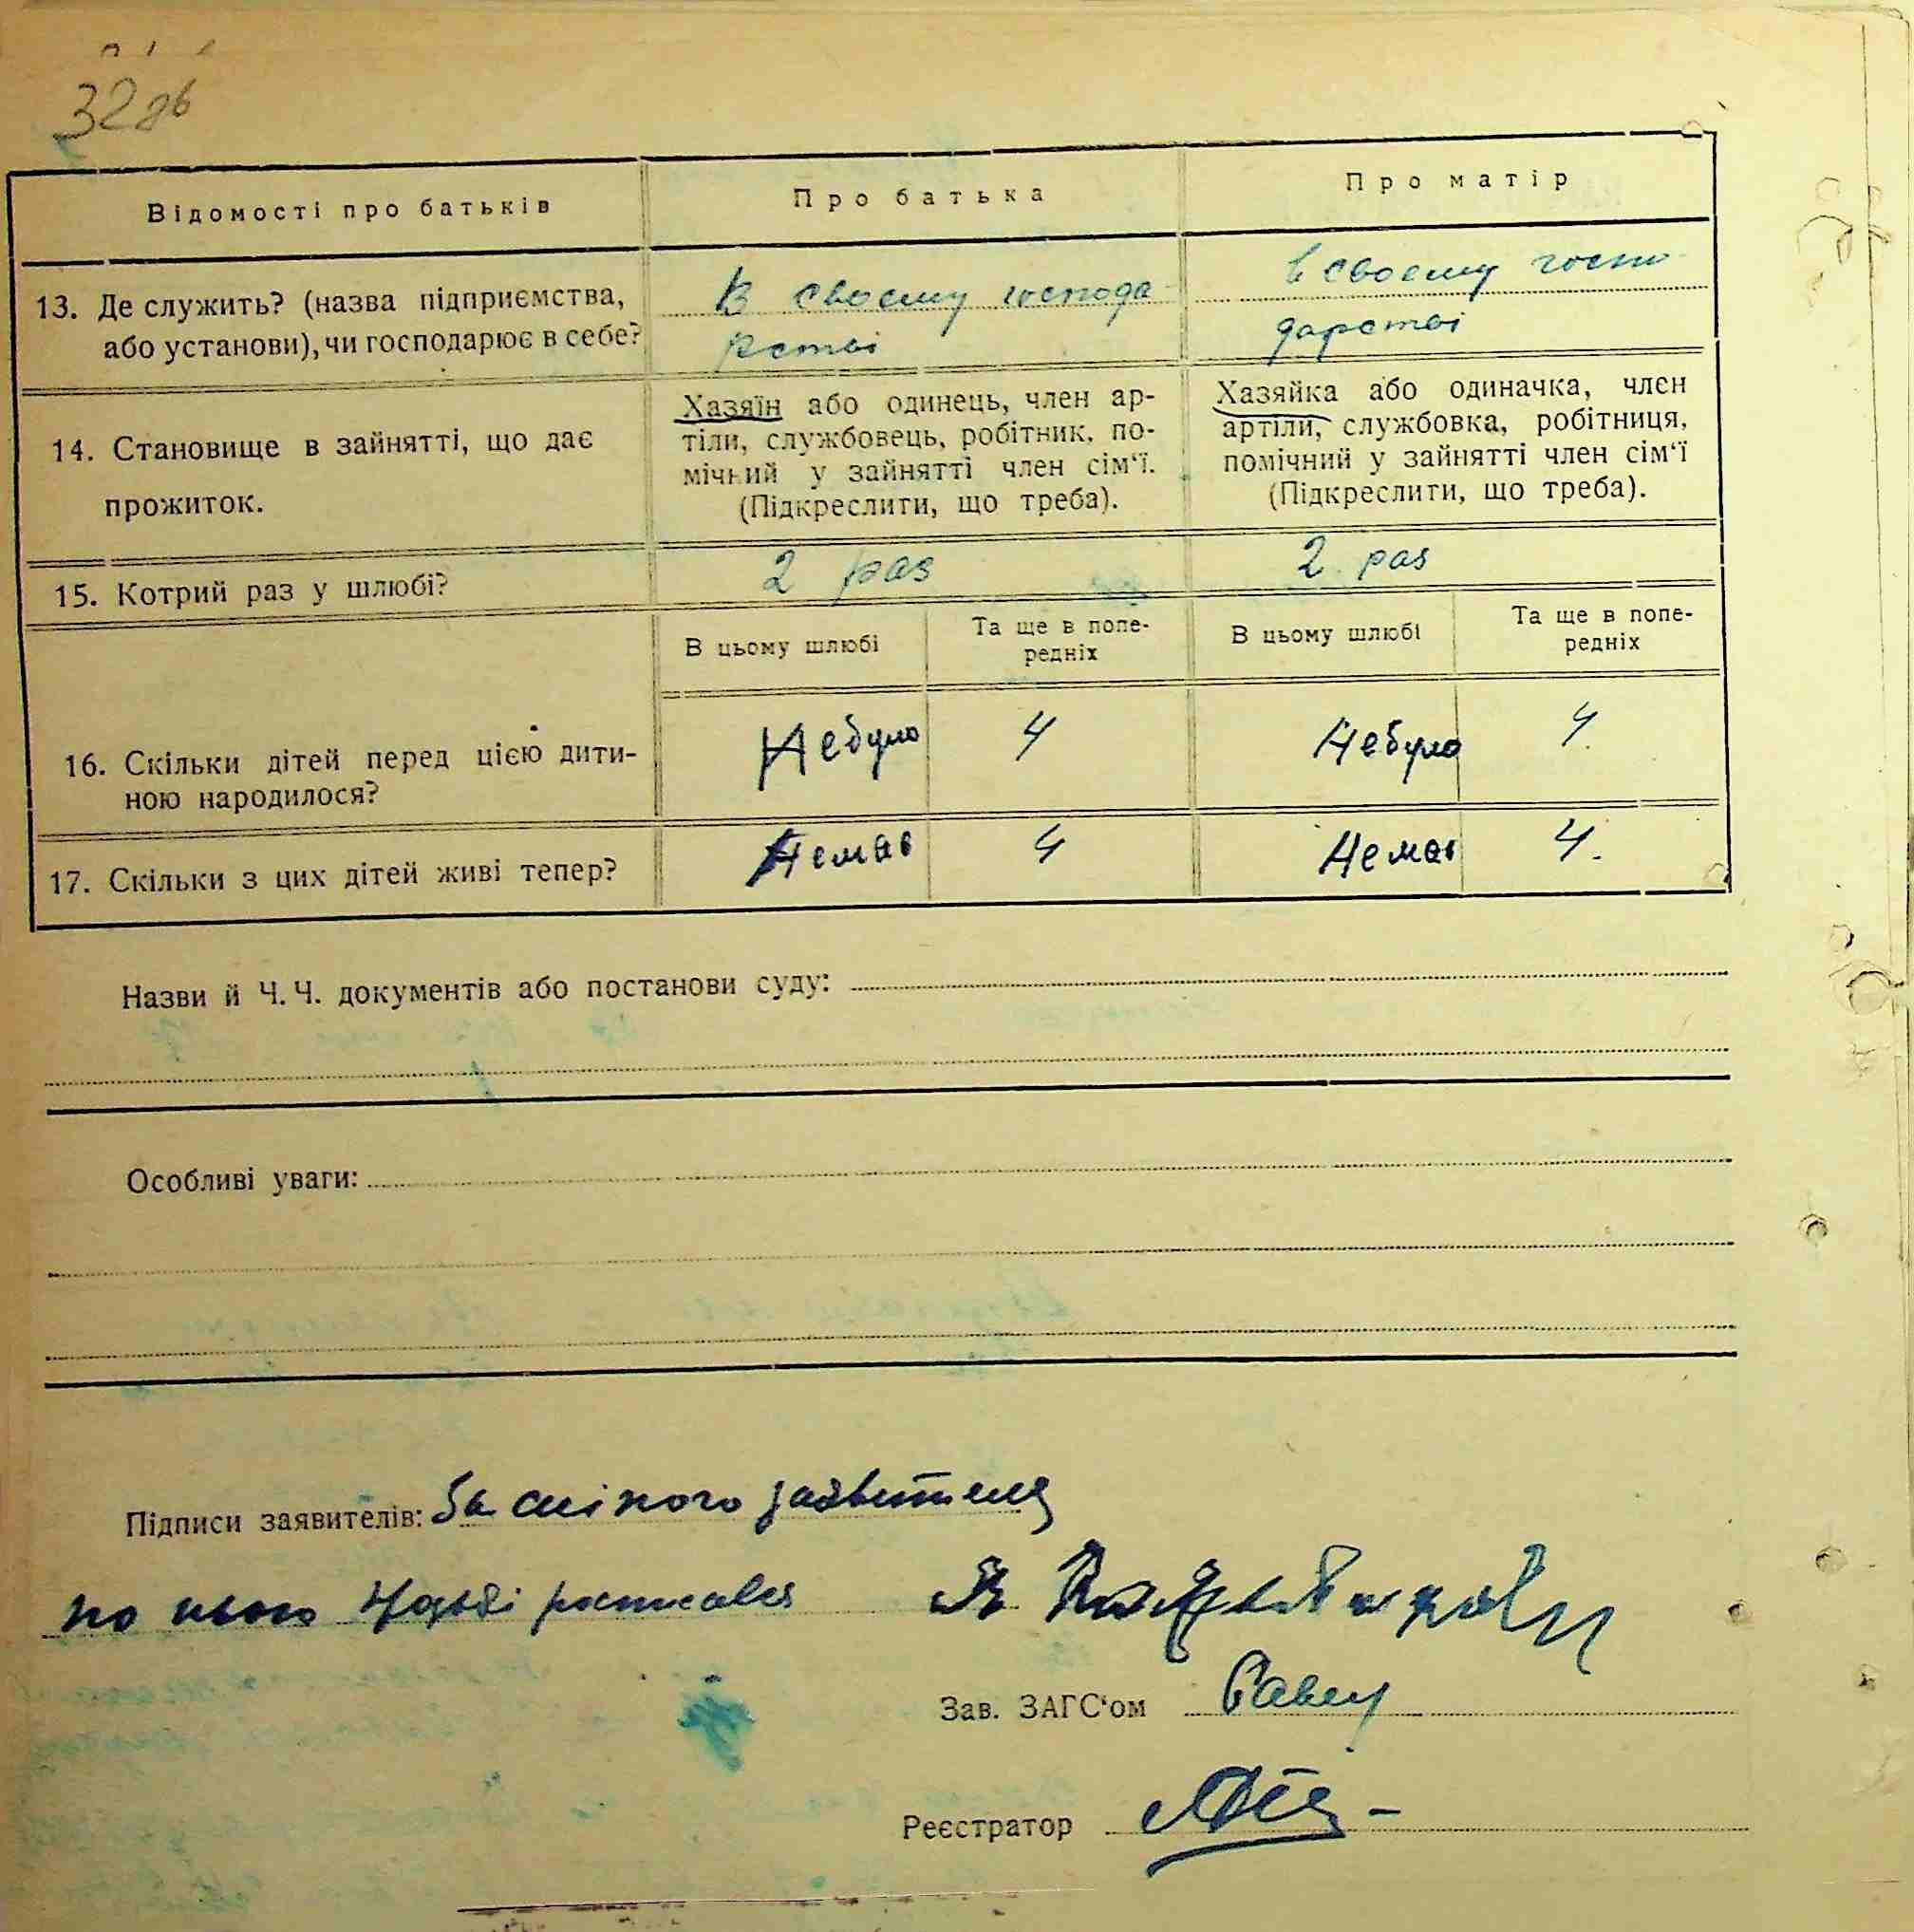 32 зв
Відомості про батьків
Про батька
Про матір
13. Де служить? (назва підприємства,
або установи), чи господарює в себе?
В своєму господа
рстві
в своєму госпо-
дарстві
14. Становище в зайнятті, що дає
прожиток.
Хазяїн або одинець, член ар-
тіли, службовець, робітник, по-
мічний у зайнятті член сім'ї.
(Підкреслити, що треба).
Хазяйка або одиначка, член
артіли, службовка, робітниця,
помічний у зайнятті член сім'ї
(Підкреслити, що треба).
15. Котрий раз у шлюбі?
2 раз
2 раз
В цьому шлюбі
Та ще в попе-
редніх
В цьому шлюбі
Та ще в попе-
редніх
16. Скільки дітей перед цією дити-
ною народилося?
Небуло
4
Небуло
4
17. Скільки з цих дітей живі тепер?
Немає
4
Немає
4.
Назви й Ч. Ч. документів або постанови суду:
Особливі уваги:
Підписи заявителів: За сліпого заявителя
по
Зав. ЗАГС'ом
Реєстратор